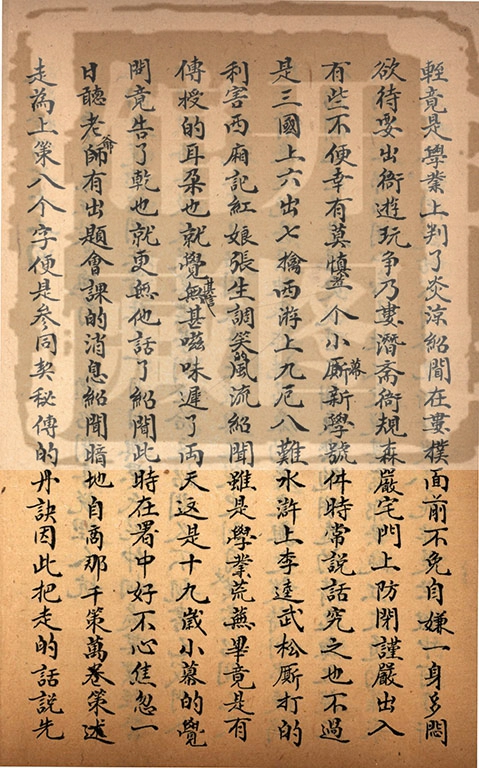 輕竟是學業上判了炎涼紹聞在婁樸面前不免自嫌一身多悶
欲待要出衙遊玩争乃婁潛斎衙規森嚴宅門上防閉謹嚴出入
有些不便幸有莫慎一个小幕厮新學號件時常説話究之也不過
是三國上六出七擒西游上九厄八難水滸上李逵武松厮打的
利害西廂記紅娘張生調笑的風流紹聞雖是學業荒蕪畢竟是有
傳授的耳朶也就覺無甚滋味遲了両天這是十九歲小幕的覺
問竟告了乾也就更無他話了紹聞此時在署中好不心焦忽一
日聽老師爺有出題會課的消息紹聞暗地自商那千策萬卷策述
走為上策八个字便是參同契秘傳的丹訣因此把走的話説先